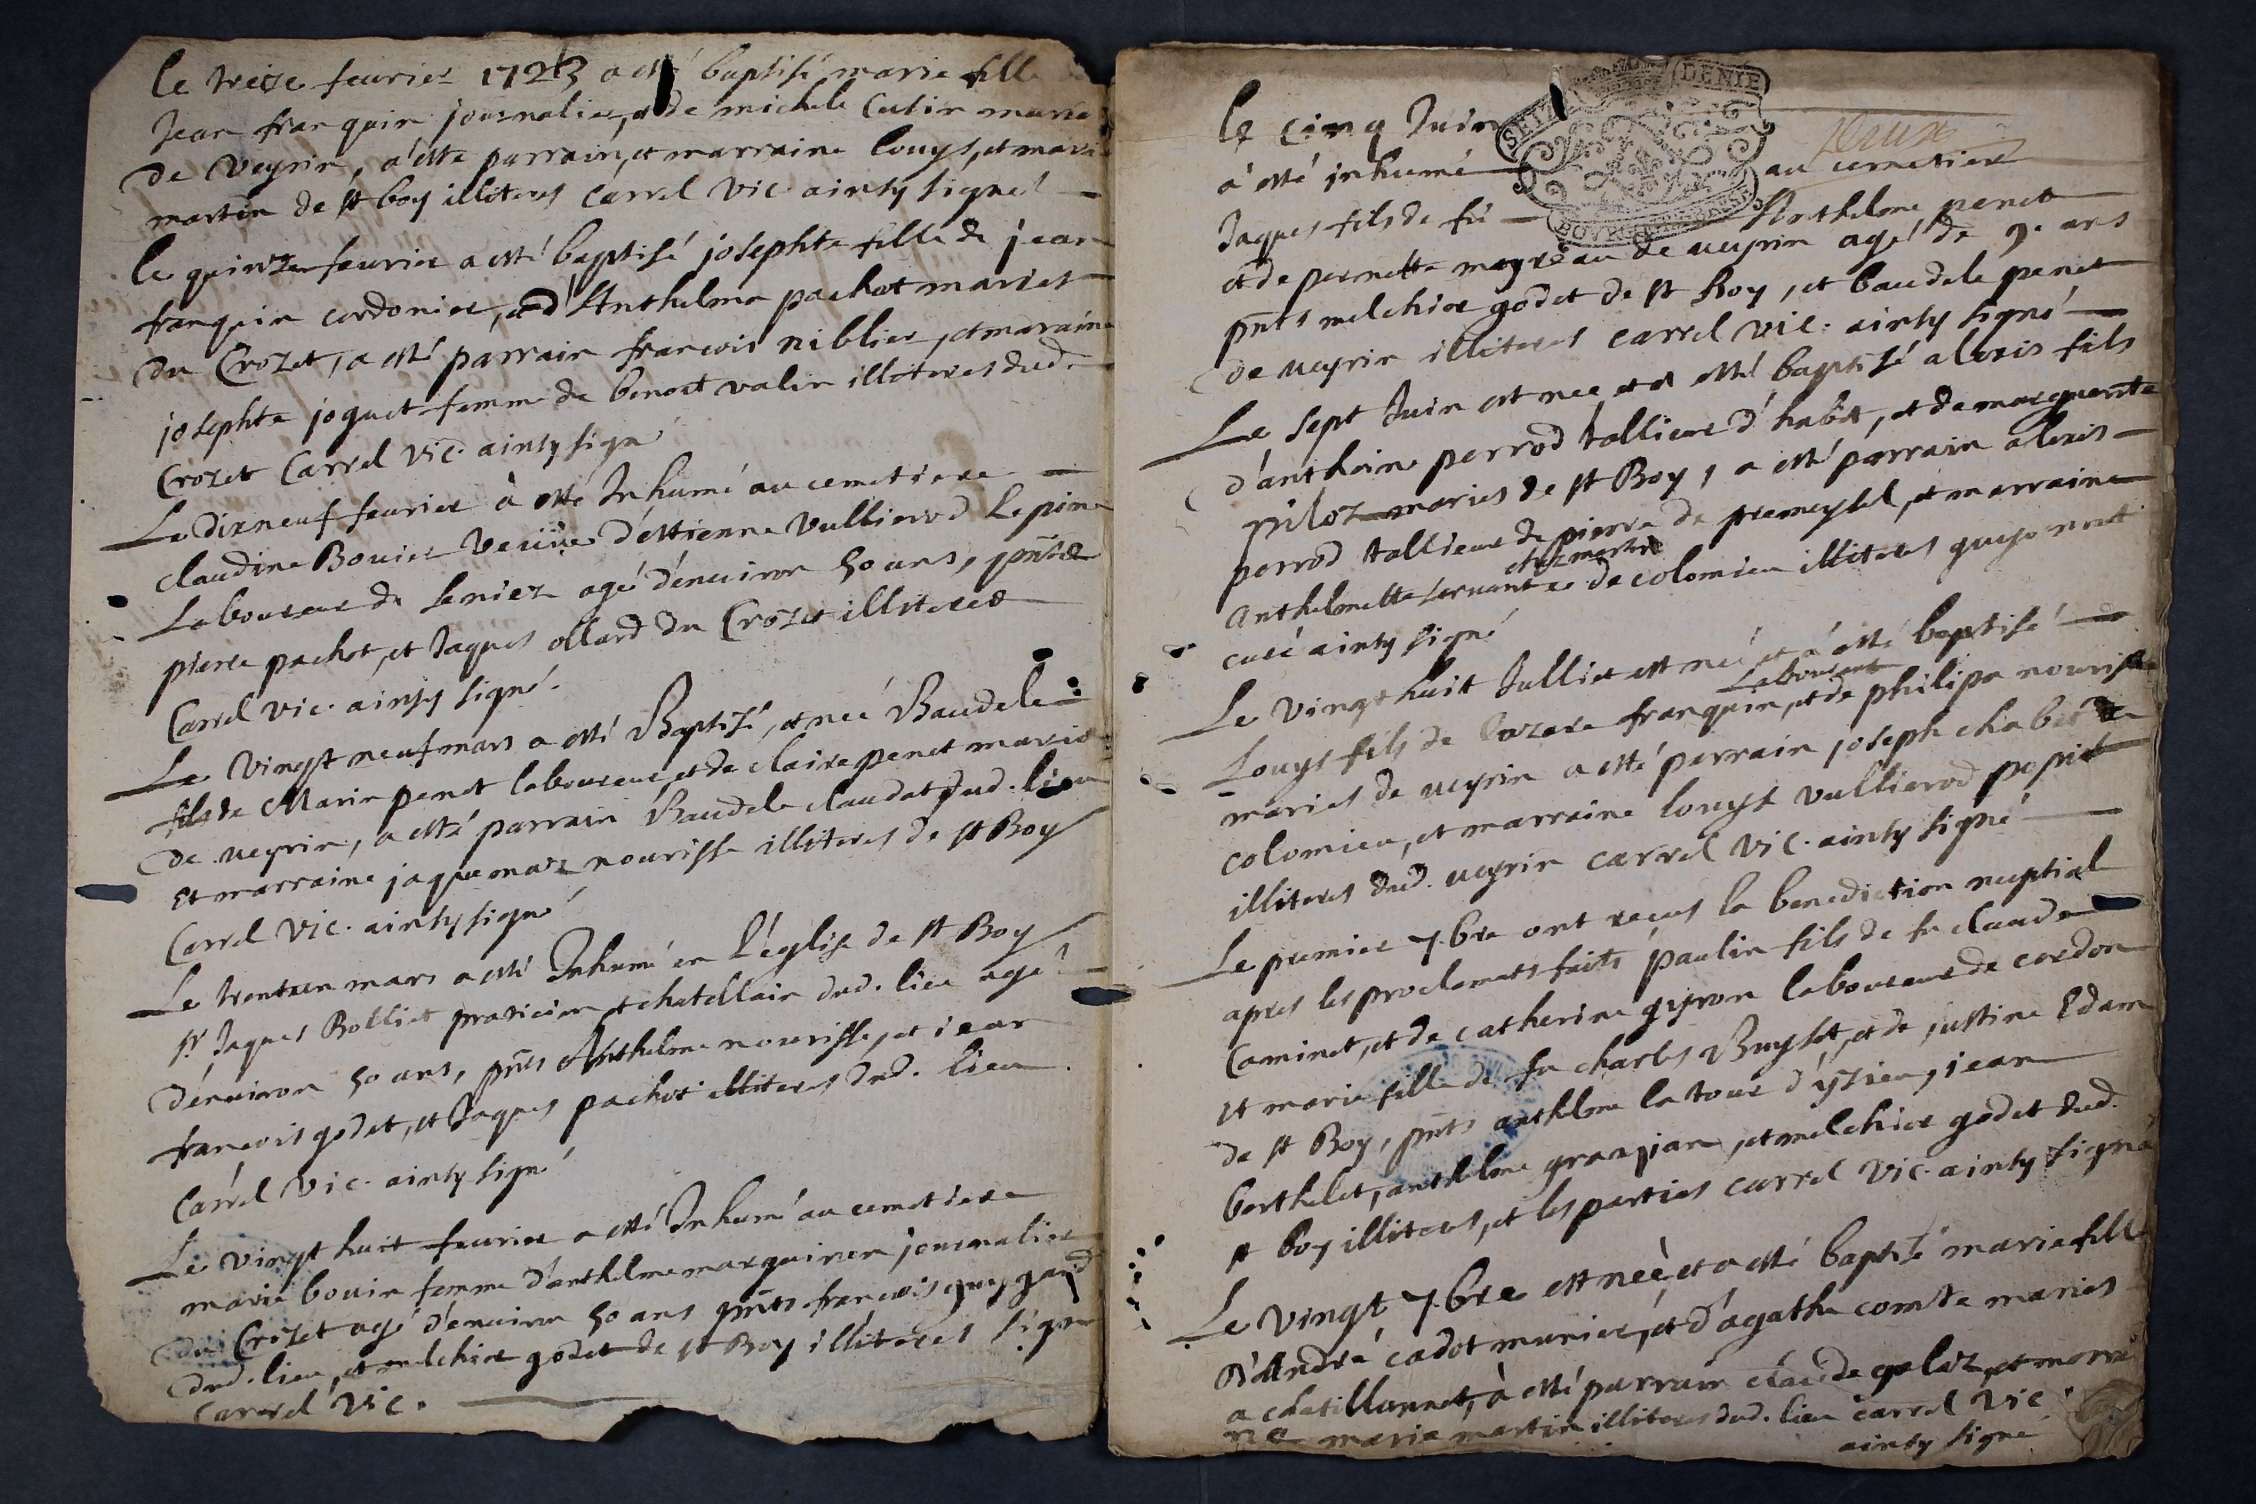 le treize feurier 1723 a esté baptisé marie fille
Jean franquin journalier, et de michele Cutin maries
de Veyrin, a esté parrain, et marraine louys, et marie
martin de st boy illiteres Carrel vic. ainsy signé
le quinze feurier a esté baptisé josephte fille de jean
franquin cordonier, et d'Anthelma pachot maries
du Crozet, a esté parrain francois niblier, et maraine
josephte joguet femme de benoet valin illiteres dud.
Crozet Carrel vic. ainsy signé
Le dixneuf feurier à esté Inhumé au cemetiere
claudine Bouier Veuüe d'estienne Vullierod Le pine
Laboureur de seniez agé d'enuiron 50 ans, pnts
pierre pachot, et Jaques ollard du Crozet illiteres
Carrel vic. ainsy signé.
Le vingt neuf mars a esté Baptisé, et neé Baudele
fils de Marin penet laboureur, et de claire penet maries
de veyrin, a esté parrain Baudele claudet dud. lieu
Et marraine jaquemaz nourisse illiteres de st Boy
Carrel vic. ainsy signé
Le trenteun mars a esté Inhumé en l'église de st Boy
sr. Jaques Rolliet praticien et chatellain dud. lieu agé
d'enuiron 50 ans, pnts Anthelme nourisse, et jean
francois godet, et Jaques pachot illiteres dud. lieu
Carrel vic. ainsy signé
Le vingt huit feurier a esté Inhumé au cemetiere
marie bouin femme d'anthelme marguiren journalier
du Crozet agé d'enuiron 50 ans pnts francois guygard
dud. lieu, et melchior godet de st Boy illiteres signé
Carrel vic.
deux
le cinq Juin
a esté inhumé au cemetiere
Jaques fils de fu Anthelme penet
et de pernette meyreau de veyrin agé de 9. ans
pnts melchior godet de st Boy, et baudele penet
de veyrin illiteres carrel vic. ainsy signé
Le sept Juin est nee et a esté baptisé alexis fils
d'anthoine perrod tallieur d'habit, et de marguerite
piloz maries de st Boy, a esté parrain alexis
perrod tallieur de pierre de premeysel, et marraine
chez martin
Anthelmette seruante de colomieu illiteres
curé ainsy signé
Le vingt huit Julliet est neé et a esté baptisé
Laboureur
Louys fils de lazare franquin, et de philipa nourisse
maries de veyrin a esté parrain joseph chabert de
colomieu, et marraine louyse vullierod
illiteres dud. veyrin carrel vic. ainsy signé
Le premier 7.bre ont reçus la benediction nuptial
apres les proclamats faits paulin fils de fu claude
Caminet, et de catherine guron laboureur de cordon
et marie fille de fu charles Buyset, et de justine Edam
de st Boy, pnts anthelme la tour d'yzieu, jean
berthelet, anthelme granjean, et melchior godet dud.
st boy illiteres, et les parties carrel vic. ainsy signé
Le vingt 7.bre est neè, et a esté baptisé marie fille
d'André cadot munier, et d'agathe comte maries
a chatillonnet, à esté parrain claude galaz, et marrai
ne marie martin illiteres dud. lieu carrel vic
ainsy signé